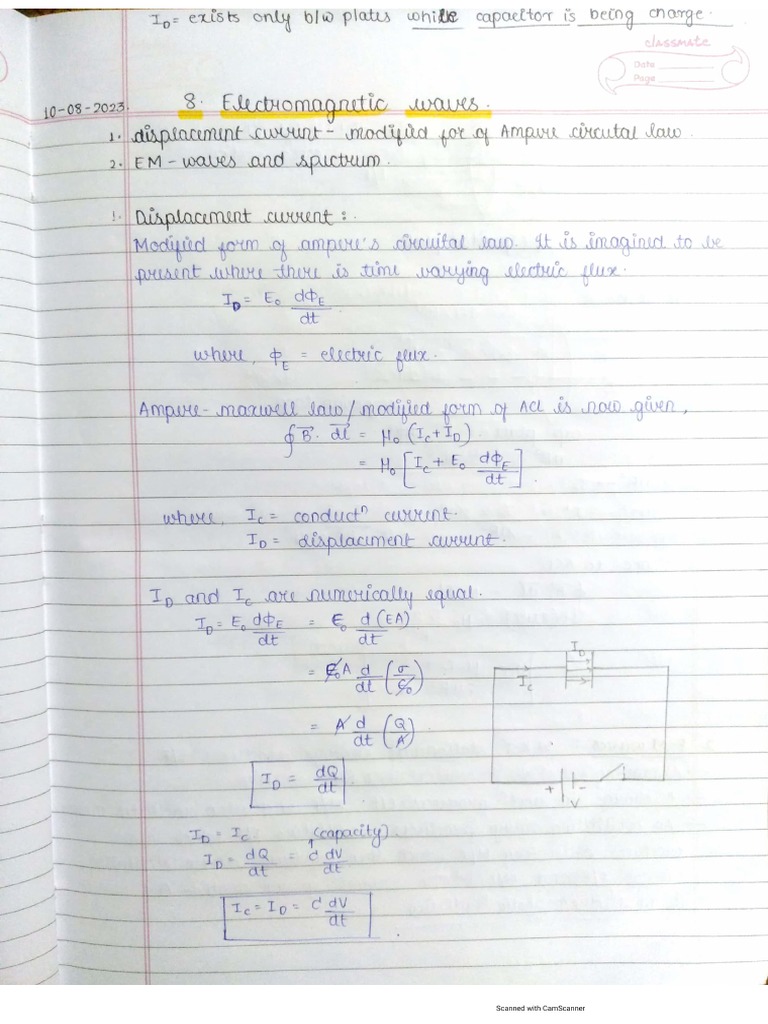 I_D = exists only b/w plates while capacitor is being charge.
classmate
Date
Page
10-08-2023.
8. Electromagnetic waves.
1. displacement current - modified for of Ampire circutal law.
2. EM - waves and spectrum.
1. Displacement current :
Modified form of ampere's circuital law. It is imagined to be
present where there is time varying electric flux.
I_D = E₀ dΦ_E/dt
where, Φ_E = electric flux.
Ampere-maxwell law/modified form of ACL is now given,
∮ B⃗. dl⃗ = μ₀ (I_C + I_D)
= μ₀ [I_C + E₀ dΦ_E/dt].
where, I_C = conductⁿ current.
I_D = displacement current.
I_D and I_C are numerically equal.
I_D = E₀ dΦ_E/dt = E₀ d(EA)/dt
= E₀A d/dt (σ/E₀)
I_D
I_C
= A d/dt (Q/A)
I_D = dQ/dt
+ -
V
I_D = I_C (capacity)
I_D = dQ/dt = C dV/dt
I_C = I_D = C dV/dt
Scanned with CamScanner